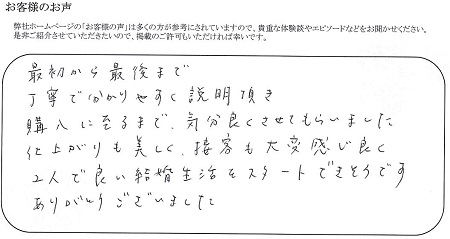 お客様のお声
弊社ホームページの「お客様の声」は多くの方が参考にされていますので、貴重な体験談やエピソードなどをお聞かせください。
是非ご紹介させていただきたいので、掲載のご許可もいただければ幸いです。
最初から最後まで
丁寧で分かりやすく説明頂き
購入に至るまで、気分良くさせてもらいました
仕上がりも美しく、接客も大変感じ良く
2人で良い結婚生活をスタートできそうです
ありがとうございました